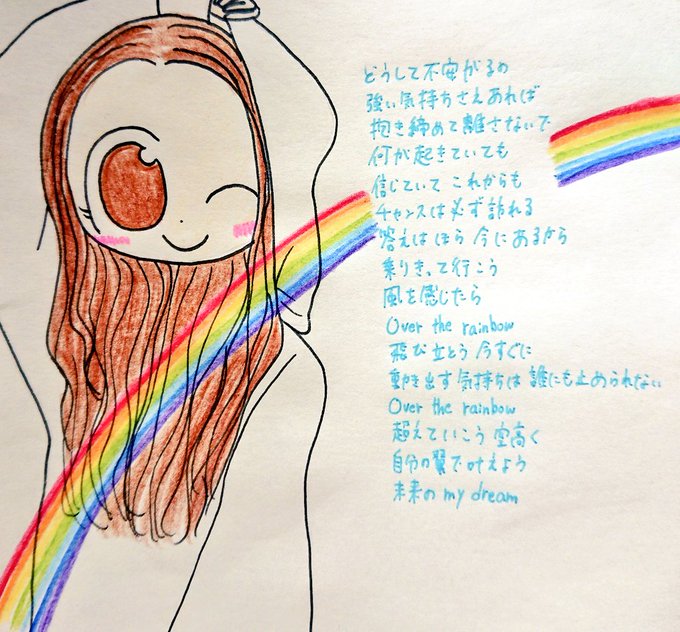 どうして不安がるの
強い気持ちさえあれば
抱き締めて離さないで
何が起きていても
信じていて これからも
チャンスは必ず訪れる
答えは ほら 今にあるから
乗りきって行こう
風を感じたら
Over the rainbow
飛び立とう 今すぐに
動き出す気持ちは 誰にも止められない
Over the rainbow
超えていこう 空高く
自分の翼で叶えよう
未来の my dream